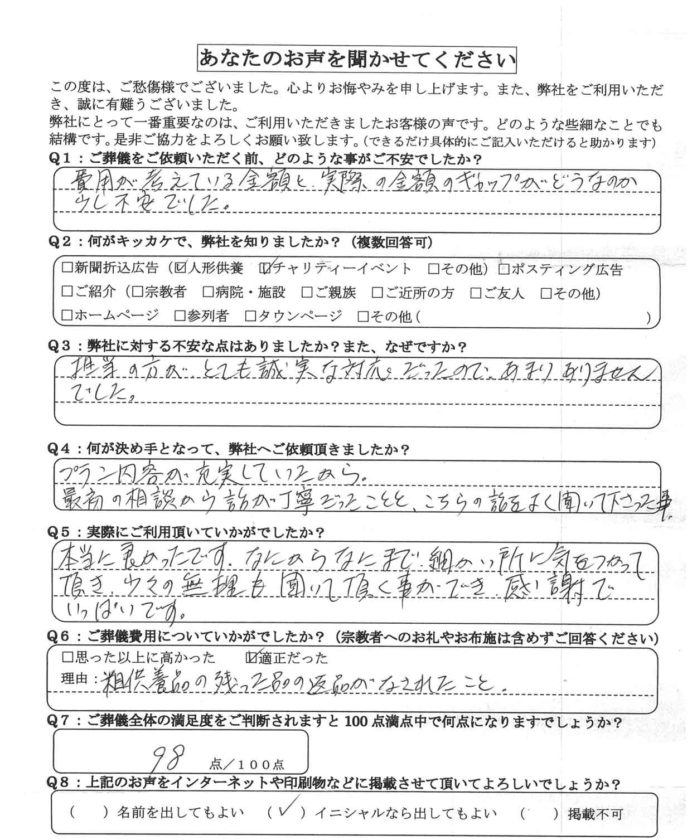 あなたのお声を聞かせてください
この度は、ご愁傷様でございました。心よりお悔やみを申し上げます。また、弊社をご利用いただ
き、誠に有難うございました。
弊社にとって一番重要なのは、ご利用いただきましたお客様の声です。どのような些細なことでも
結構です。是非ご協力をよろしくお願い致します。(できるだけ具体的にご記入いただけると助かります)
Q1:ご葬儀をご依頼いただく前、どのような事がご不安でしたか?
費用が考えている金額と実際の金額のギャップがどうなのか
少し不安でした。
Q2:何がキッカケで、弊社を知りましたか?(複数回答可)
□新聞折込広告(☑人形供養 ☑チャリティーイベント □その他)□ポスティング広告
□ご紹介(□宗教者 □病院・施設 □ご親族 □ご近所の方 □ご友人 □その他)
□ホームページ □参列者 □タウンページ □その他( )
Q3:弊社に対する不安な点はありましたか?また、なぜですか?
担当の方が、とても誠実な対応だったので、あまりありません
でした。
Q4:何が決め手となって、弊社へご依頼頂きましたか?
プラン内容が充実していたから。
最初の相談から話が丁寧だったことと、こちらの話をよく聞いて下さった事。
Q5:実際にご利用頂いていかがでしたか?
本当に良かったです。なにからなにまで細かい所に気をつかって
頂き、少々の無理も聞いて頂く事ができ、感謝で
いっぱいです。
Q6:ご葬儀費用についていかがでしたか?(宗教者へのお礼やお布施は含めずご回答ください)
□思った以上に高かった ☑適正だった
理由:粗供養品の残った品の返品がなされたこと。
Q7:ご葬儀全体の満足度をご判断されますと100点満点中で何点になりますでしょうか?
98 点/100点
Q8:上記のお声をインターネットや印刷物などに掲載させて頂いてよろしいでしょうか?
( )名前を出してもよい (✓)イニシャルなら出してもよい ( )掲載不可